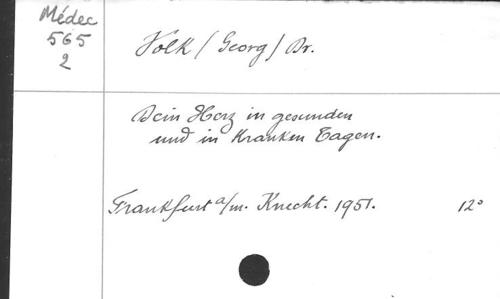 Médec
565
2
Volk / Georg / Dr.
Dein Herz in gesunden
und in Kranken Tagen.
Frankfurt a/m. Knecht. 1951.
12°